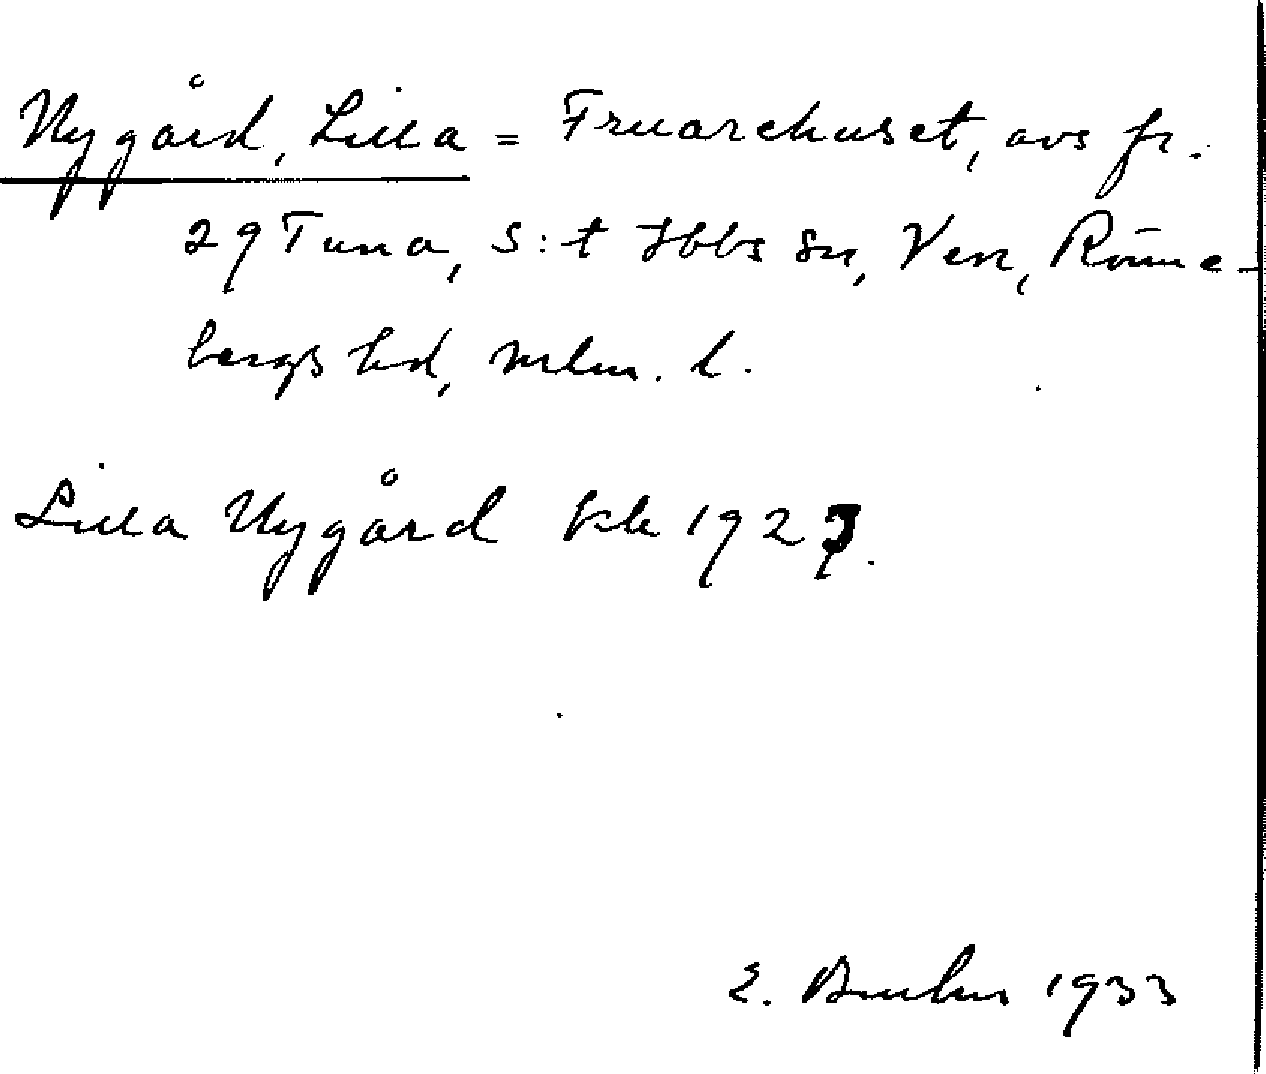 Nygård, Lilla = Fruarehuset, avs fr.
29 Tuna, S:t Ibbs sn, Ven, Rönne-
bergs hd, Mlm. l.
Lilla Nygård kk 1927.
1933